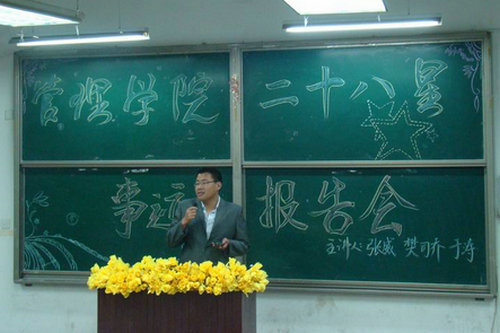 管理学院 二十八星
事迹报告会
主讲人: 张威 樊司乔 于涛